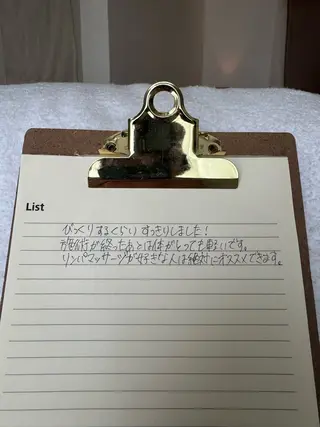 List
びっくりするくらいすっきりしました!
施術が終ったあとは体がとっても軽いです。
リンパマッサージが好きな人は絶対にオススメできます。